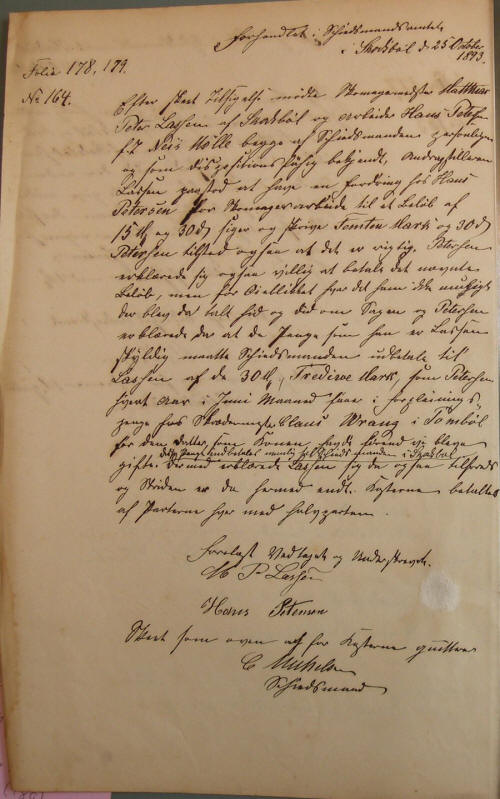 Forhandlet i Schiedsmandsamtet
i Skodsböl d 25 October
1893.
Folio 178, 179.
No 164.
Efter skeet Tilsigelse mødte Skomagermester Matthias
Peter Lassen af Skodsböl og Arbeider Hans Petersen
f. T. Niis Mölle begge af Schiedsmanden personligen
og som dispositionsfähig bekjendt, Andragstilleren
Lassen paastod at have en Fordring hos Hans
Petersen for Skomagerarbeide til et Beløb af
15 og 30 siger og skrive Femten Mark og 30
Petersen tilstod ogsaa at det er rigtig. Petersen
erklærede sig ogsaa villig at betale det nævnte
Beløb, men for Øieblikket var det ham ikke muligt
der blev da talt hid og did om Sagen og Petersen
erklærede da at de Penge som han er Lassen
skyldig maatte Schiedsmanden indbetale til
Lassen af de 30, Tredive Mark, som Petersen
hvert Aar i Juni Maaned have i Forpleinings
penge hos Skrædermester Claus Wrang i Tombøl
for den Datter, som Konen havde førend vi bleve
disse Penge indbetales nemlig til Schiedsmanden i Skodsbøl
gifte. Dermed erklærede Lassen sig da ogsaa tilfreds
og Striden er da hermed endt. Kosterne betaltes
af Parterne hver med halvparten.
Forelæst Vedtaget og Underskrevet.
M P Lassen
Hans Petersen
Skeet som oven og for Kosterne quitteret
C Michelsen
Schiedsmand